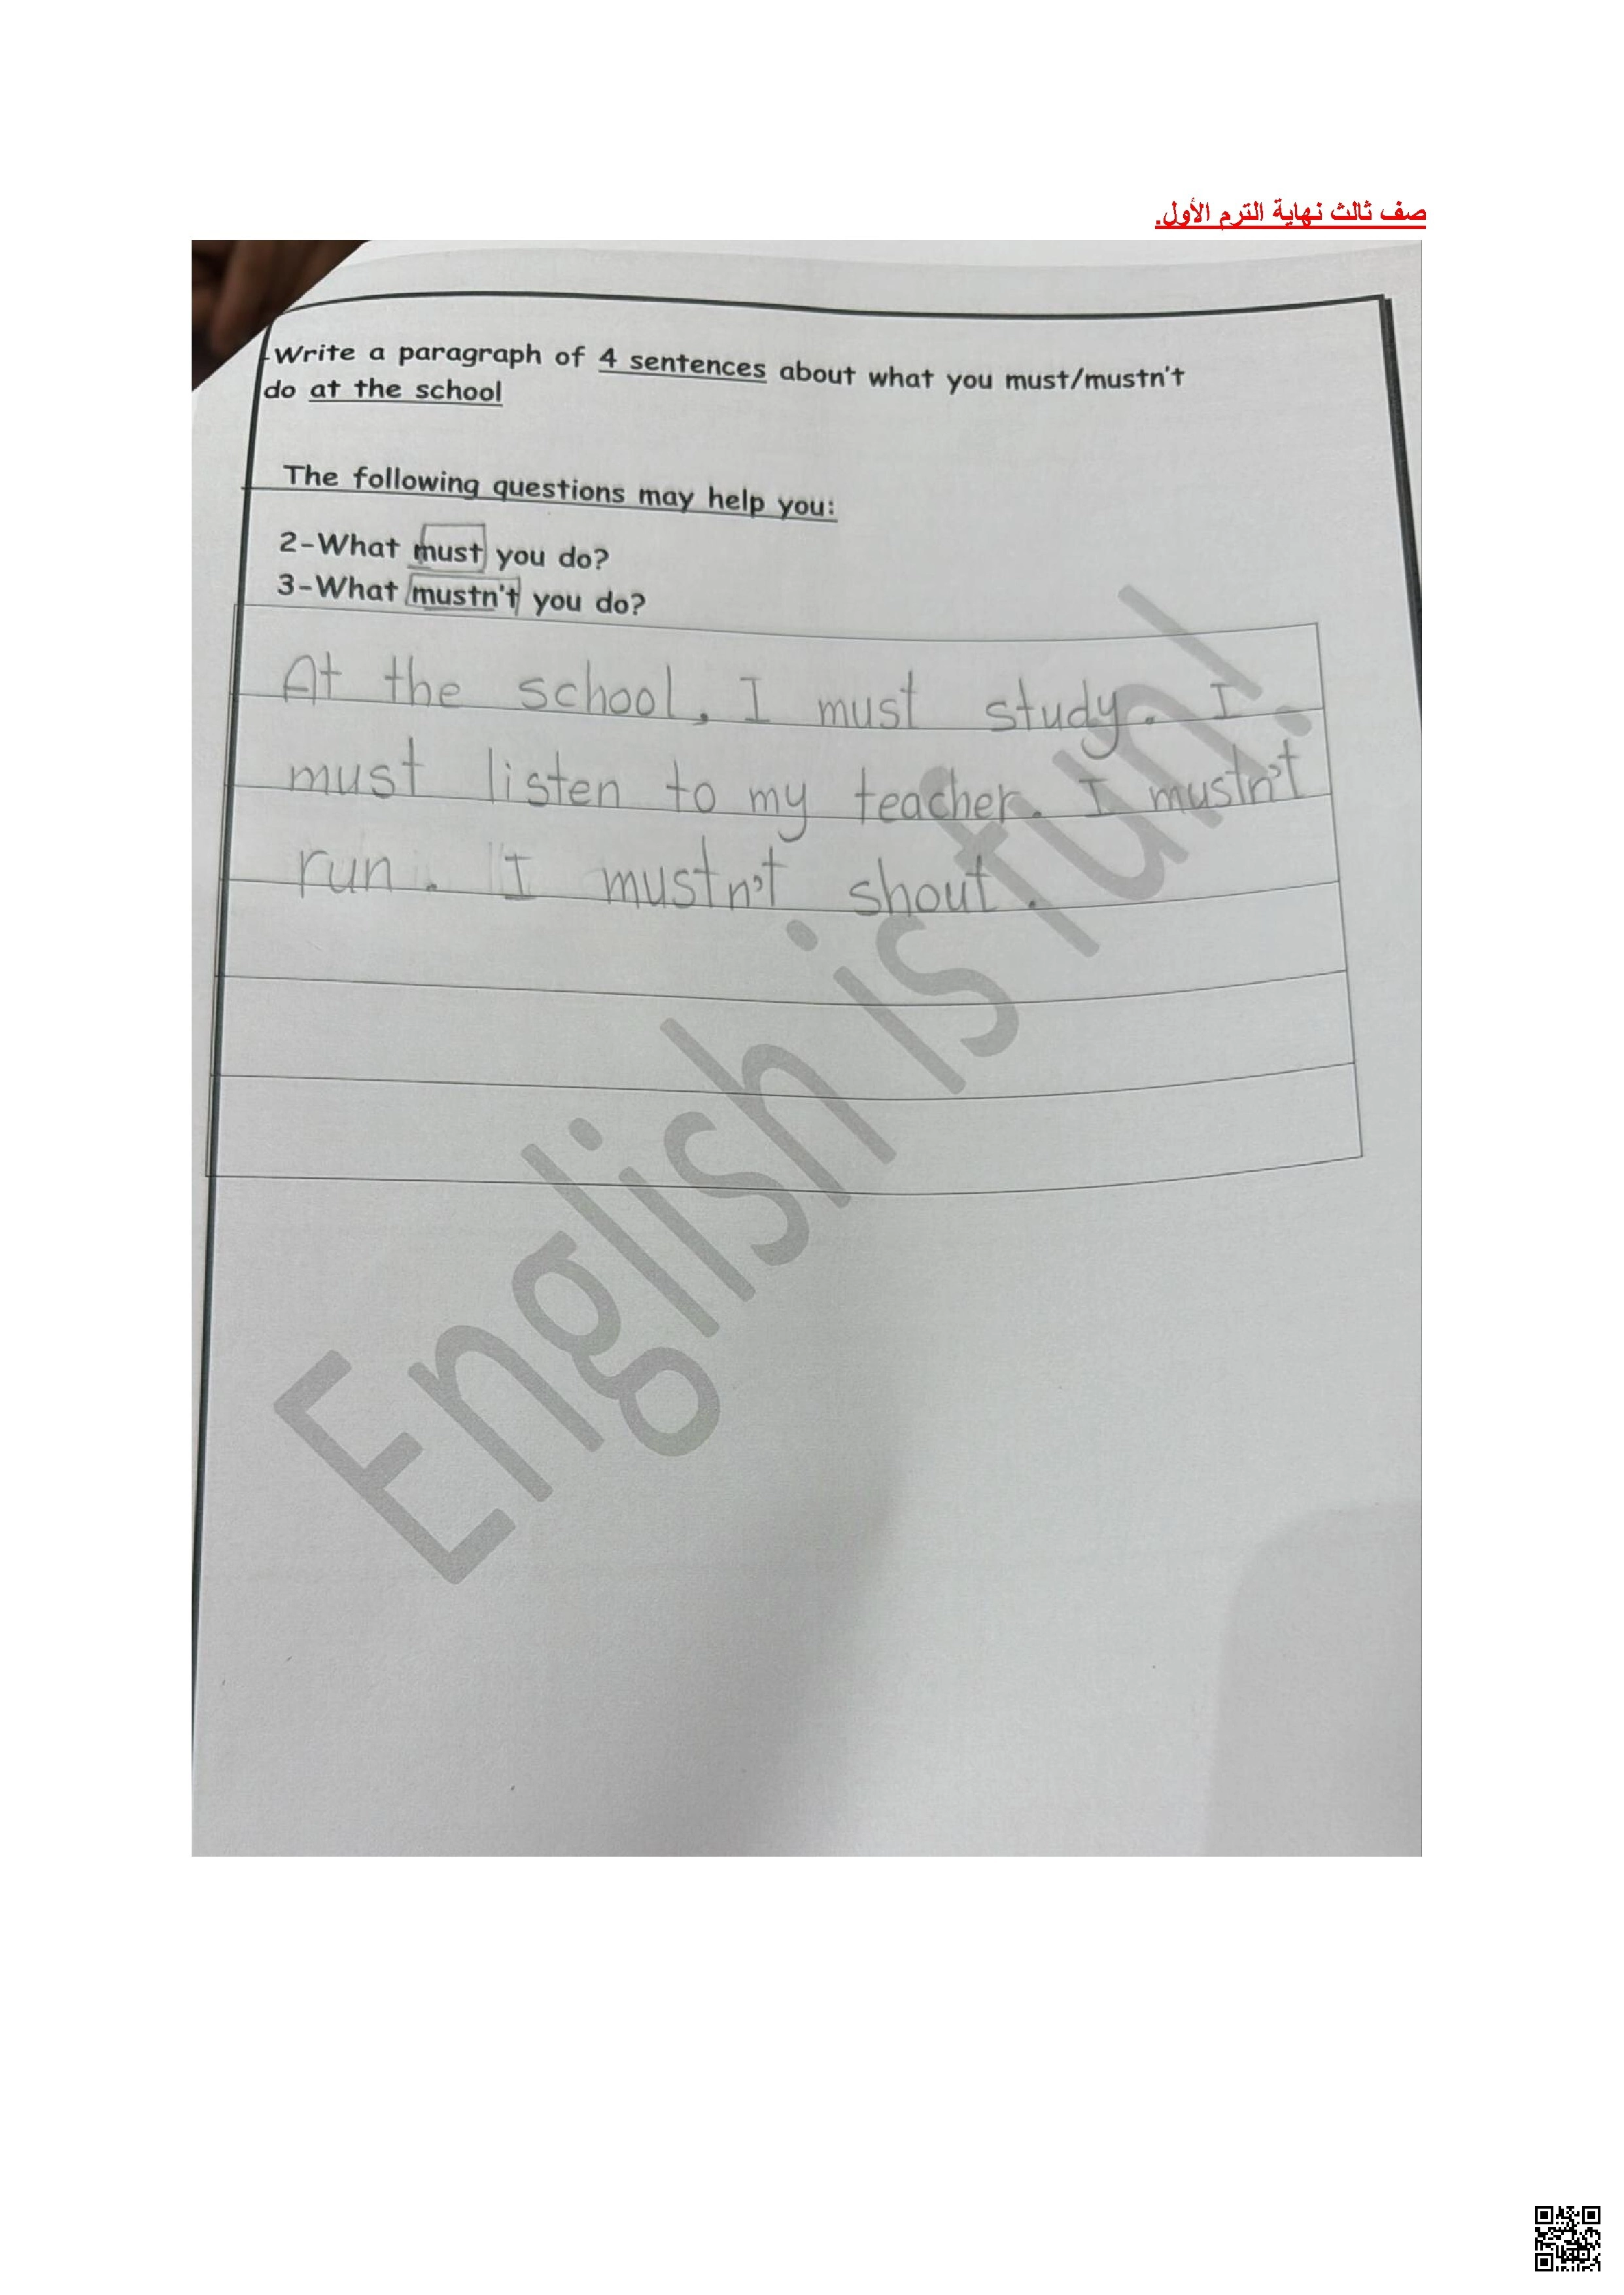 صف ثالث نهاية الترم الأول.
-Write a paragraph of 4 sentences about what you must/mustn't
do at the school
The following questions may help you:
2-What must you do?
3-What mustn't you do?
At the school, I must study. I
must listen to my teacher. I mustn't
run. I mustn't shout.
English is fun!